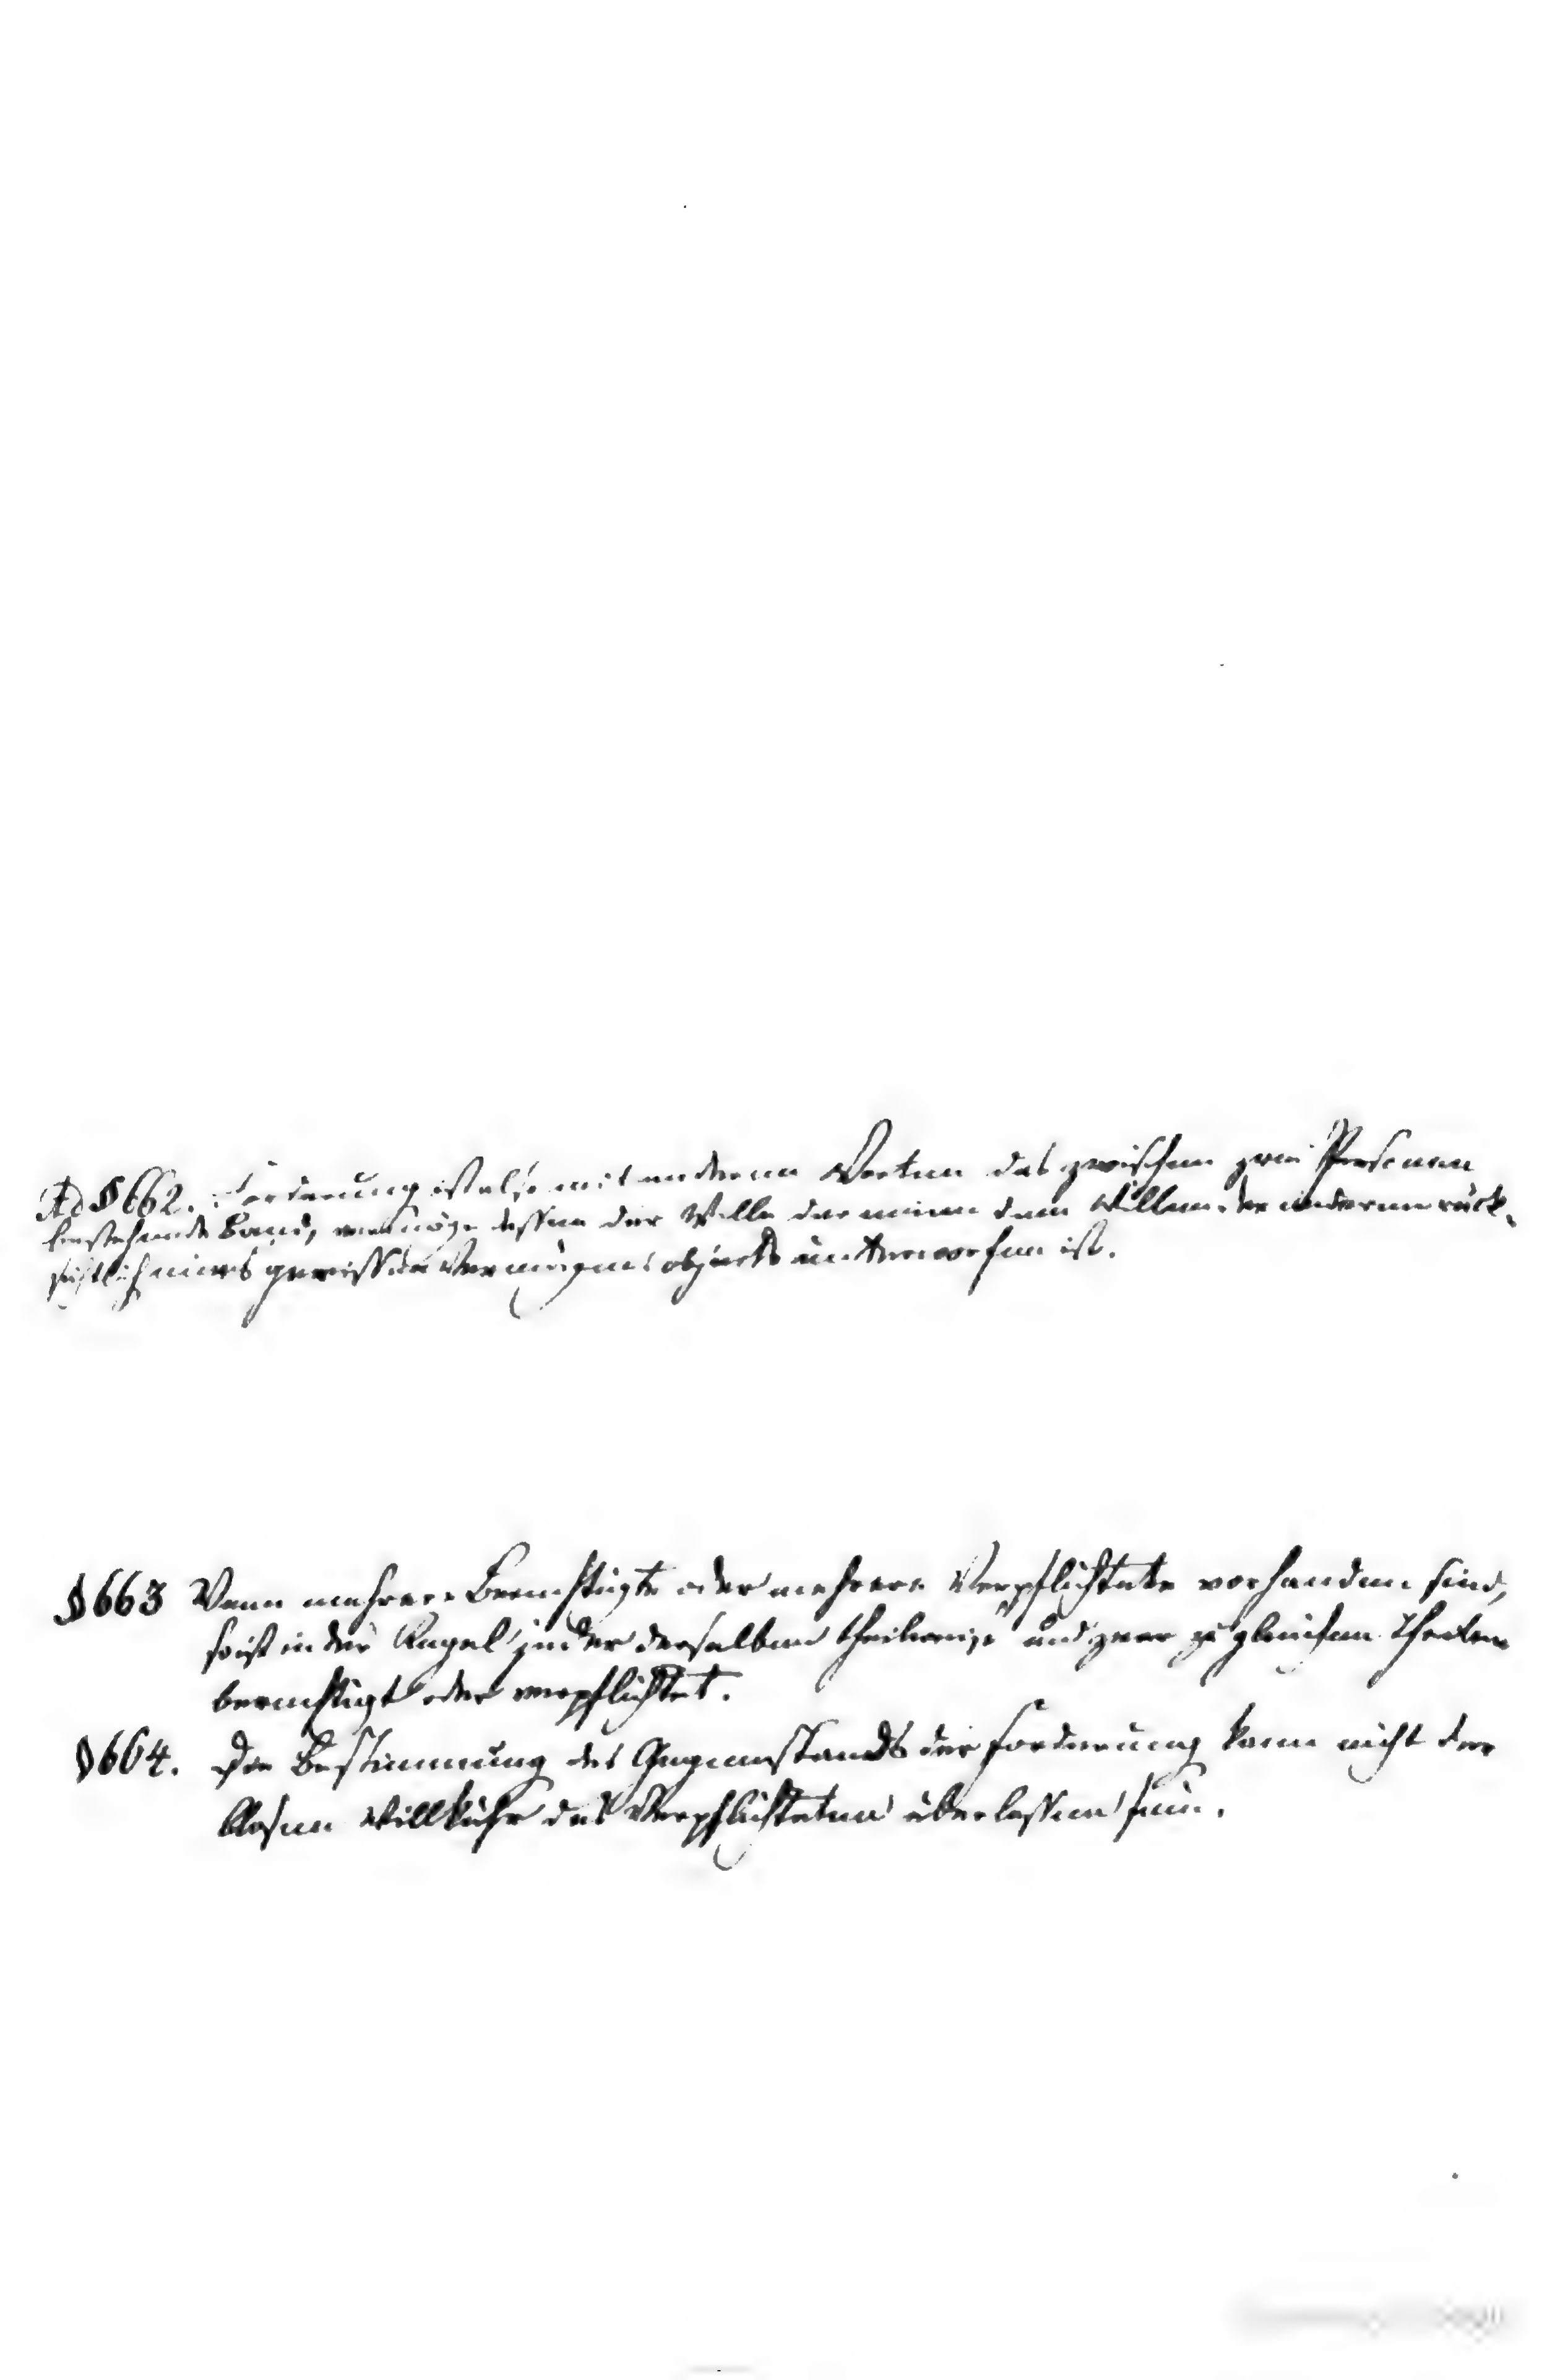 Ad § 662. Forderung ist also mit anderen Worten das zwischen zwei Personen
bestehende Band, vermöge dessen der Wille der einen dem Willen der anderen rück-
sichtlich eines gewissen Vermögensobjects unterworfen ist.
§ 663 Wenn mehrere Berechtigte oder mehrere Verpflichtete vorhanden sind,
so ist in der Regel jeder derselben theilweise und zwar zu gleichen Theilen
berechtigt oder verpflichtet.
§ 664. Die Bestimmung des Gegenstands der Forderung kann nicht der
blosen Willkühr des Verpflichteten überlassen sein.